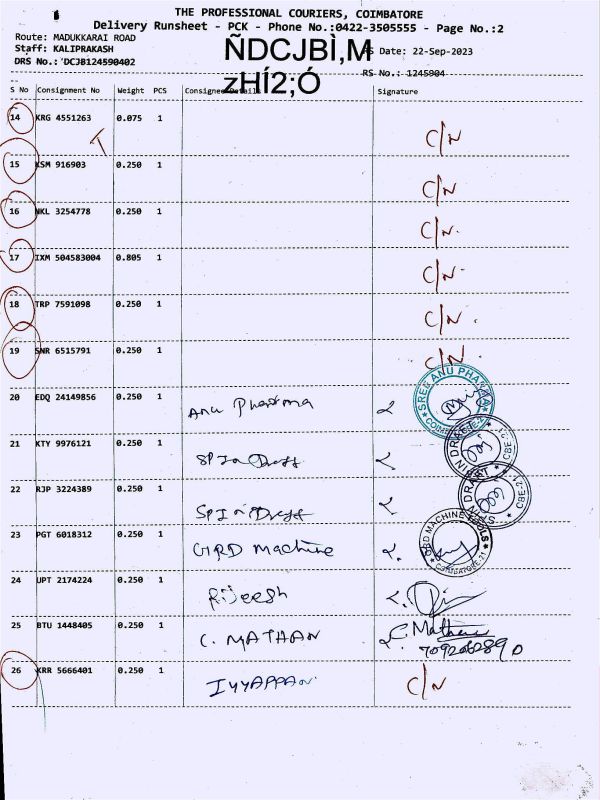 THE PROFESSIONAL COURIERS, COIMBATORE
Delivery Runsheet - PCK - Phone No.:0422-3505555 - Page No.:2
Route: MADUKKARAI ROAD
Staff: KALIPRAKASH
RS Date: 22-Sep-2023
DRS No.: 'DCJB124590402
RS No.: 1245904
ÑDCJBÌ,M
zHÍ2;Ó
S No Consignment No Weight PCS Consignee Details Signature
14 KRG 4551263 0.075 1 C/N
15 KSM 916903 0.250 1 C/N
16 NKL 3254778 0.250 1 C/N.
17 IXM 504583004 0.805 1 C/N
18 TRP 7591098 0.250 1 C/N.
19 SNR 6515791 0.250 1 C/N.
20 EDQ 24149856 0.250 1 Anu Pharma
SREE ANU PHARMA
21 KTY 9976121 0.250 1
22 RJP 3224389 0.250 1
23 PGT 6018312 0.250 1 GRD Machine
GRD MACHINE TOOLS
COIMBATORE-21
24 UPT 2174224 0.250 1 Rijeesh
25 BTU 1448405 0.250 1 C. MATHAN C. Mathan
26 KRR 5666401 0.250 1 IYYAPPAN. C/N